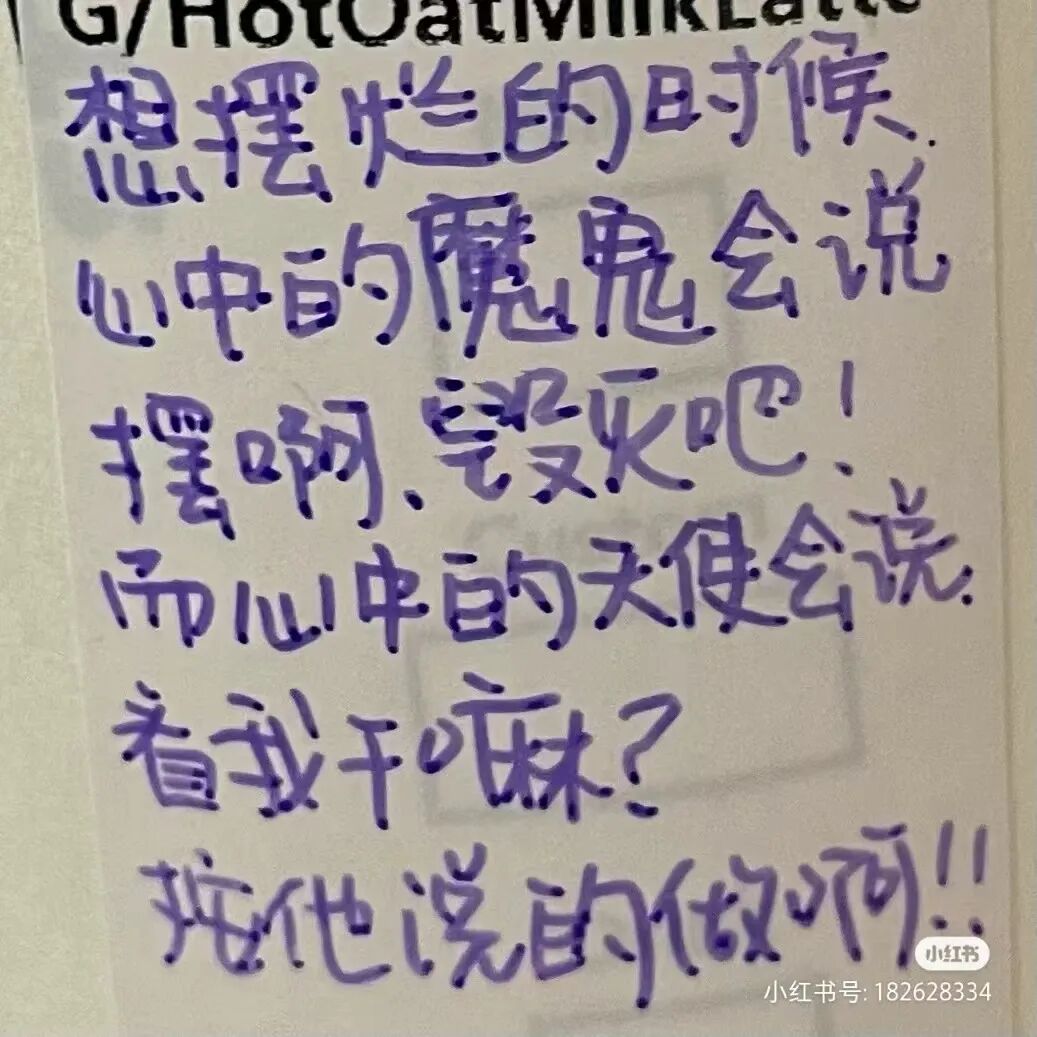 G/HotOatMilkLatte
想摆烂的时候.
心中的魔鬼会说
摆啊、毁灭吧！
而心中的天使会说.
看我干嘛？
按他说的做啊!!
小红书
小红书号: 182628334